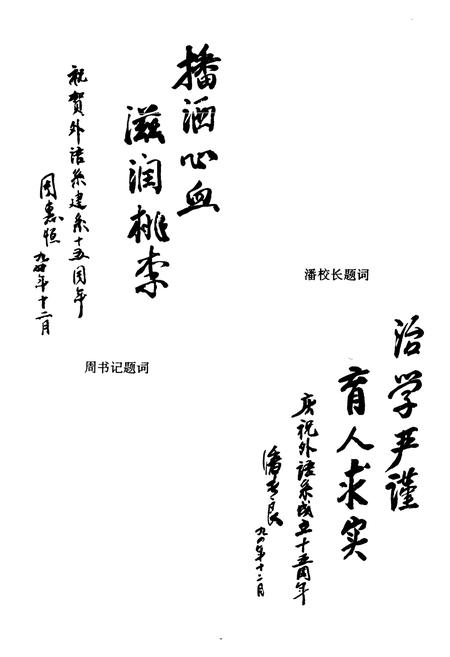 播洒心血
滋润桃李
祝贺外语系建系十五周年
周惠恒
九四年十二月
周书记题词
潘校长题词
治学严谨
育人求实
庆祝外语系成立十五周年
九四年十二月